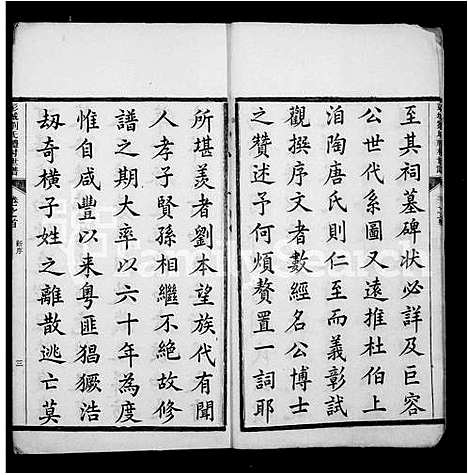 至其祠墓碑狀必詳及巨容
公世代系圖又遠推杜伯上
洎陶唐氏則仁至而義彰試
觀撰序文者數經名公博士
之贊述予何煩贅置一詞耶
所堪羨者劉本望族代有聞
人孝子賢孫相繼不絕故修
譜之期大率以六十年為度
惟自咸豐以来粵匪猖獗浩
刼奇橫子姓之離散逃亡莫
彭城劉氏禮村世譜
卷之首
新序
三
FamilySearch